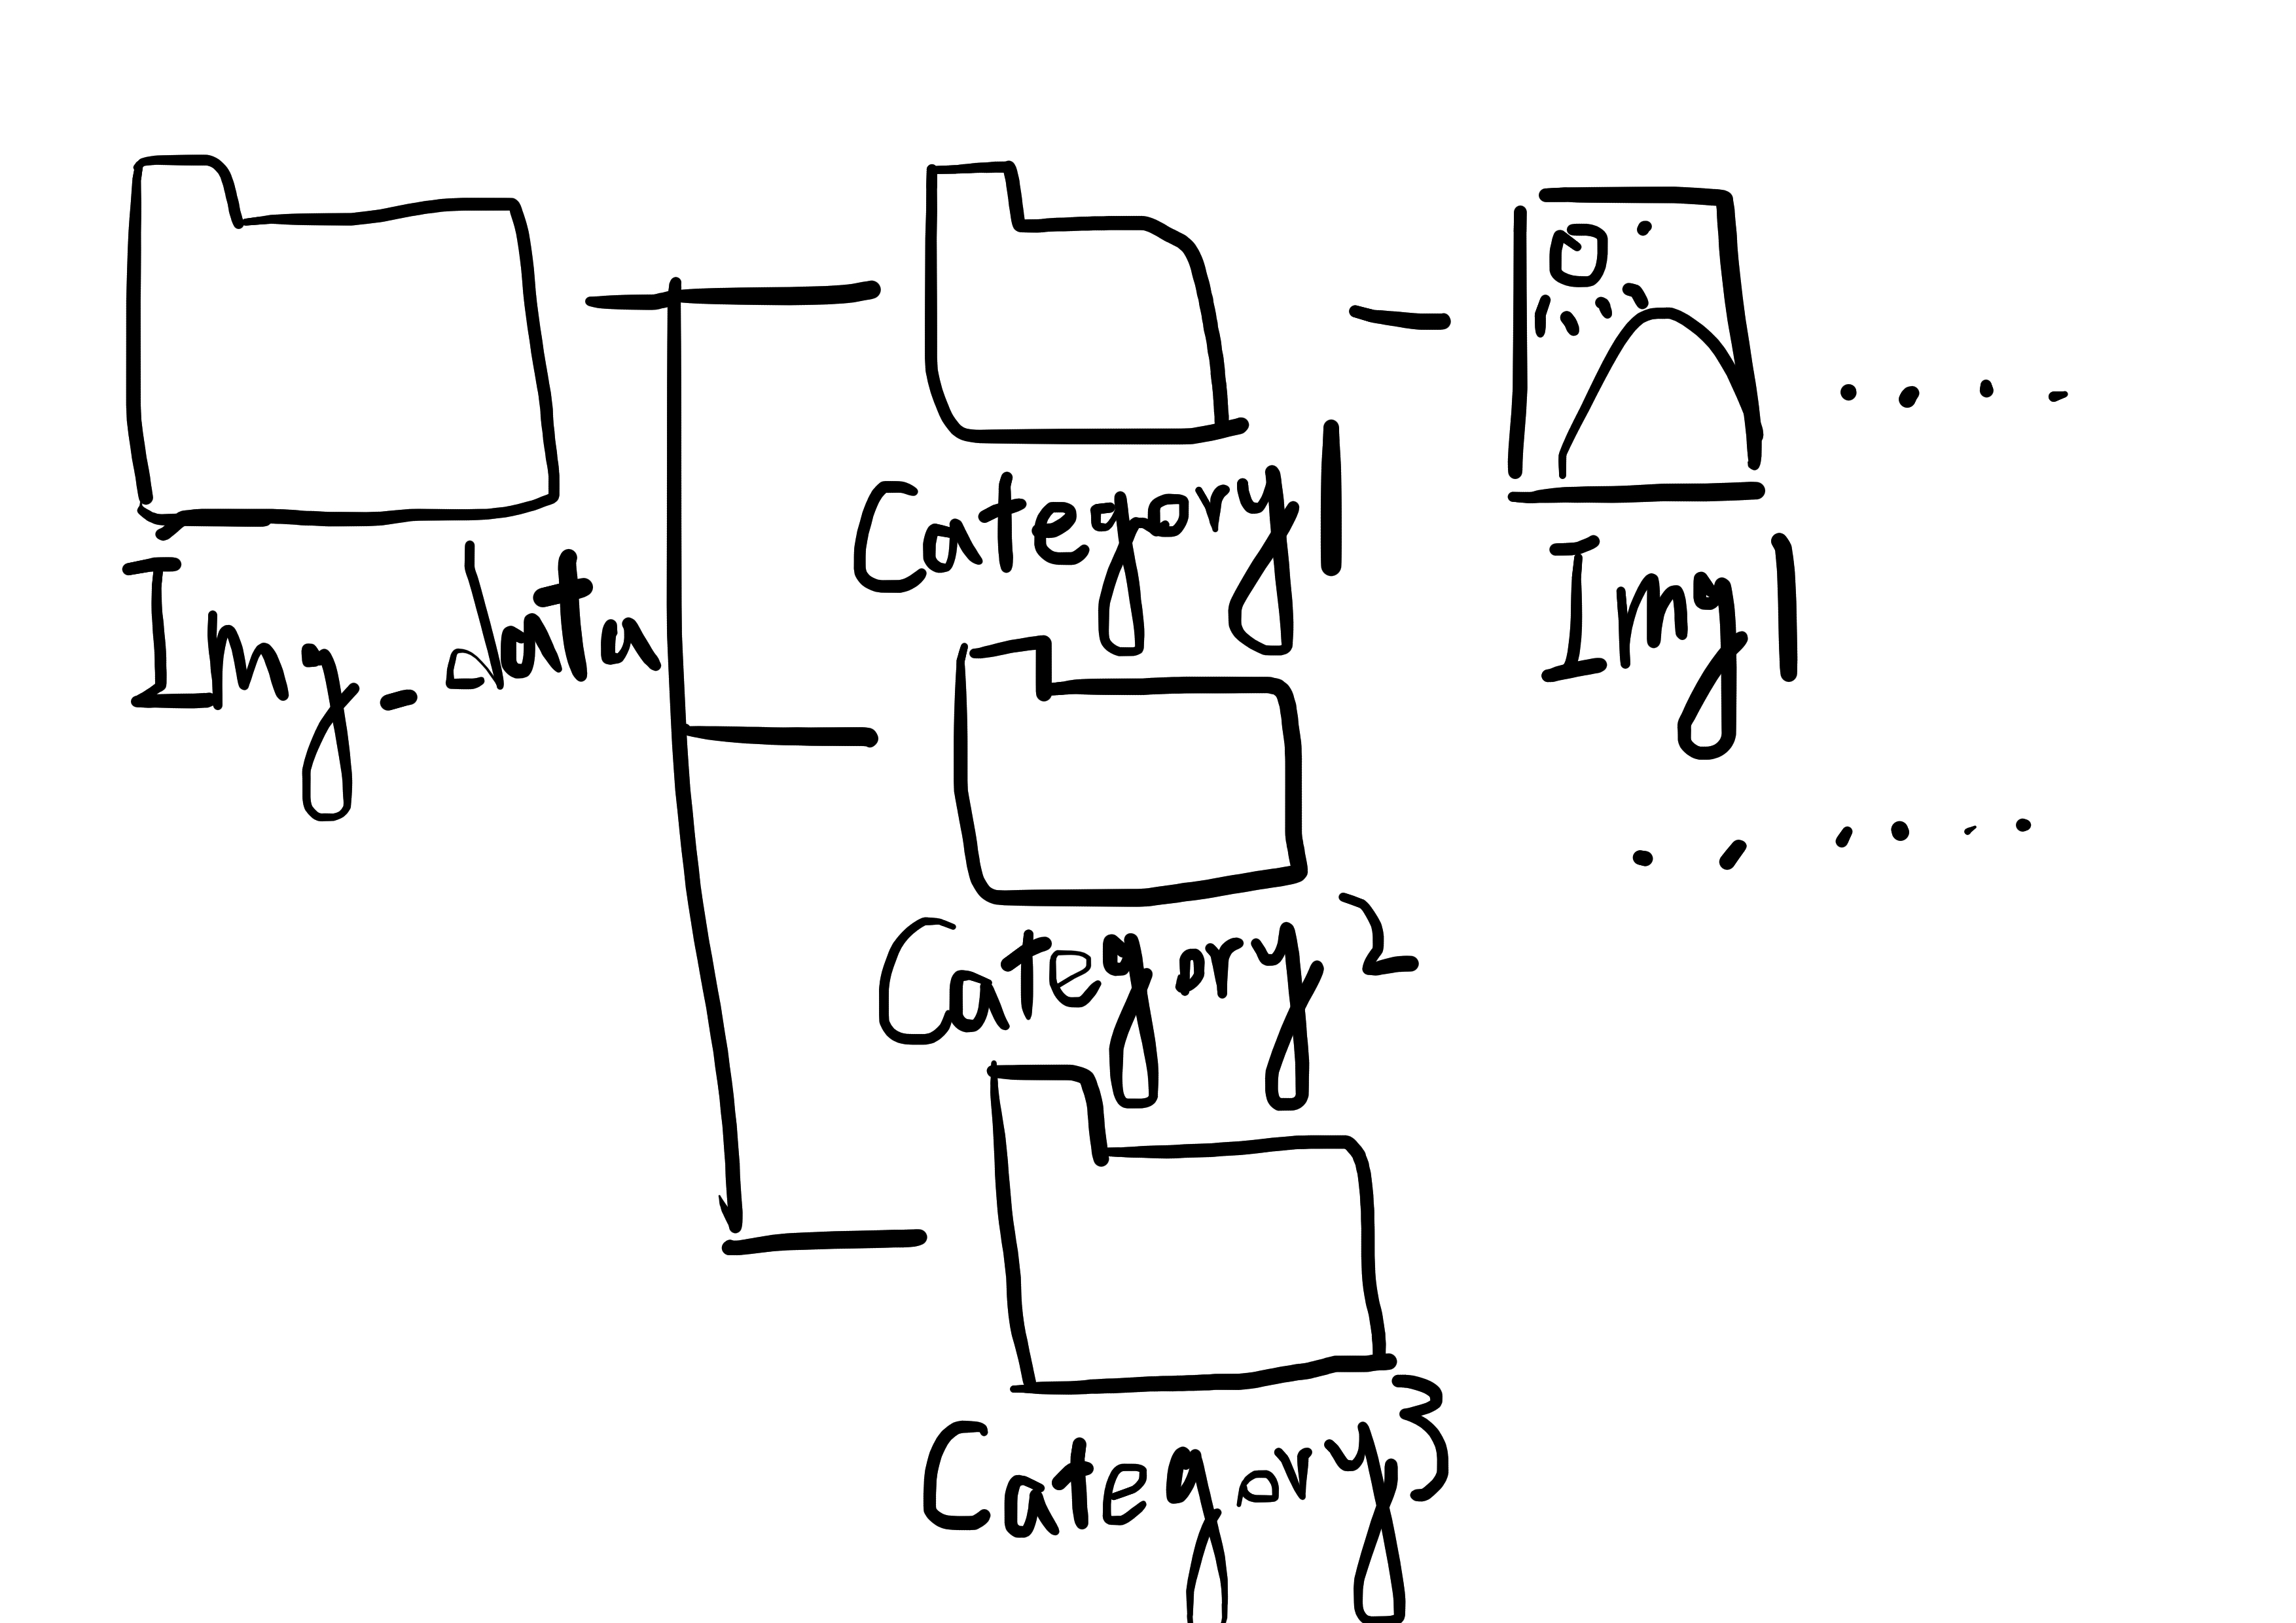 Img_data
Category1
Img1
Category2
Category3